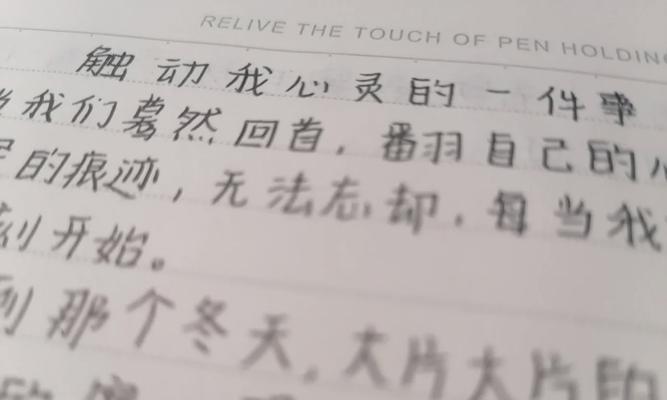 RELIVE THE TOUCH OF PEN HOLDING
触动我心灵的一件事
当我们蓦然回首，翻自己的心
的痕迹，无法忘却，每当我
刻开始。
到那个冬天，大片大片的